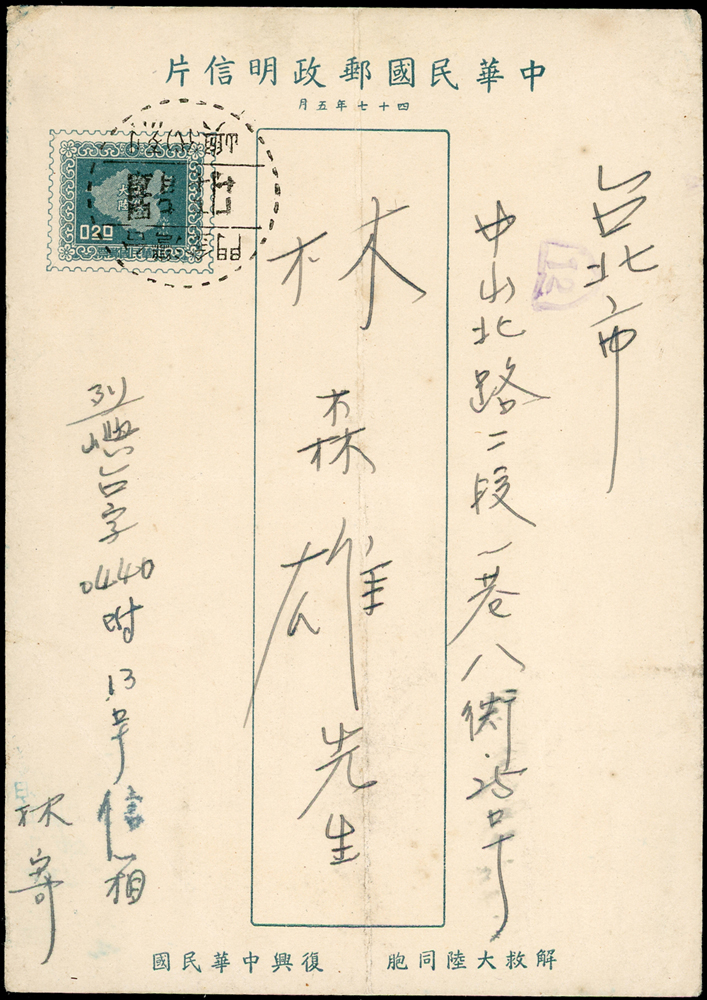 中華民國郵政明信片
四十七年五月
台北市
中山北路二段一巷八衖25号
林森雄先生
列嶼台字0440附13号信箱
林寄
大陸
0 20
12
解救大陸同胞 復興中華民國